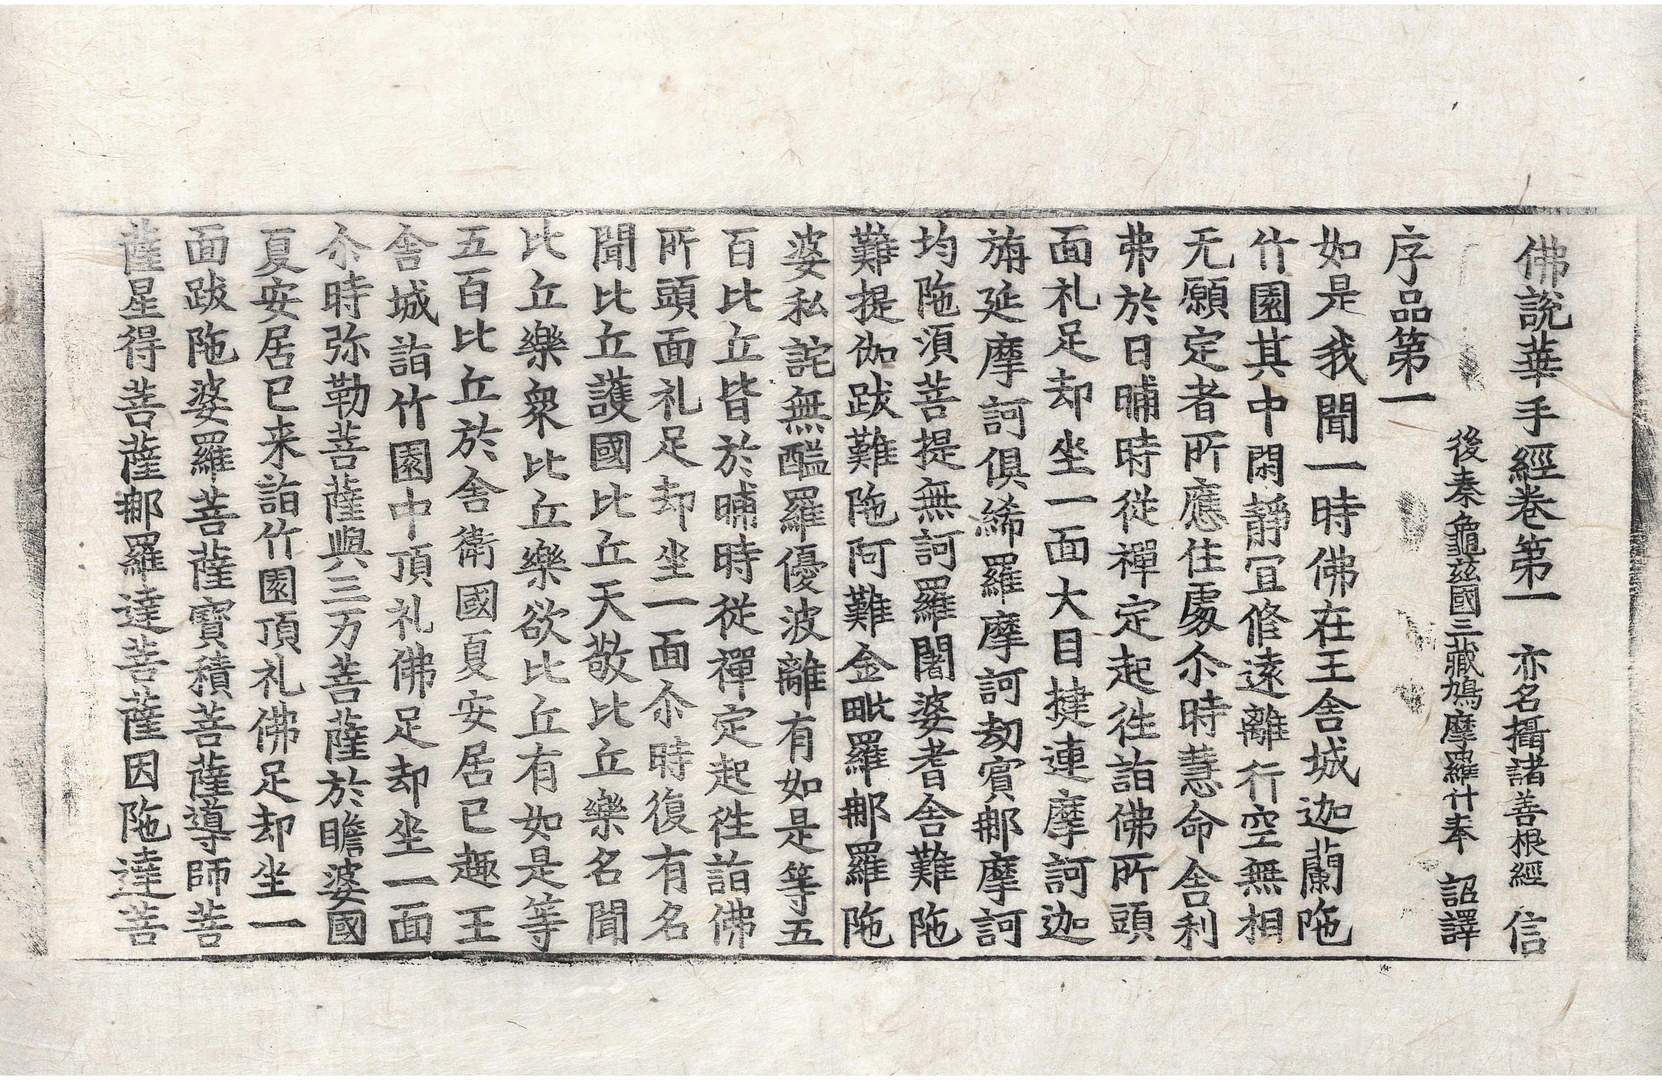 佛說華手經卷第一 亦名攝諸善根經 信
後秦龜茲國三藏鳩摩羅什奉 詔譯
序品第一
如是我聞一時佛在王舍城迦蘭陁
竹園其中閑靜宜修遠離行空無相
无願定者所應住處尒時慧命舍利
弗於日晡時從禪定起徃詣佛所頭
面礼足却坐一面大目揵連摩訶迦
旃延摩訶俱絺羅摩訶劫賓那摩訶
均陁須菩提無訶羅闍婆耆舍難陁
難提伽跋難陁阿難金毗羅那羅陁
婆私詫無醯羅優波離有如是等五
百比丘皆於晡時從禪定起徃詣佛
所頭面礼足却坐一面尒時復有名
聞比丘護國比丘天敬比丘樂名聞
比丘樂衆比丘樂欲比丘有如是等
五百比丘於舍衛國夏安居已趣王
舍城詣竹園中頂礼佛足却坐一面
尒時弥勒菩薩與三万菩薩於瞻婆國
夏安居已来詣竹園頂礼佛足却坐一
面跋陁婆羅菩薩寶積菩薩導師菩
薩星得菩薩那羅達菩薩因陁達菩